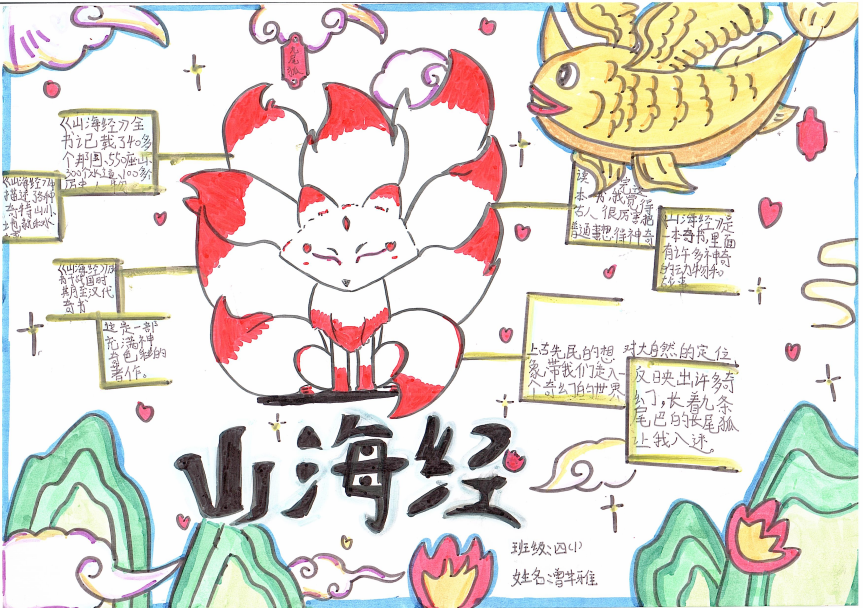 九尾狐
《山海经》全
书记载了40多
个邦国、550座山
300个水道、100多
历史人物
《山海经》
描述各种
奇特山川
《山海经》成
书于战国时
期至汉代
奇书
这是一部
充满神
奇色彩的
著作。
读完这
本书,我觉得
古人很厉害,把
普通事想得神奇
山海经是
一本奇书,里面
有许多神奇
的动物和
上古先民的想
象,带我们走入一
个奇幻的世界
对大自然的定位,
反映出许多奇
幻,长着九条
尾巴的长尾狐
让我入迷。
山海经
班级:四(1)
姓名: